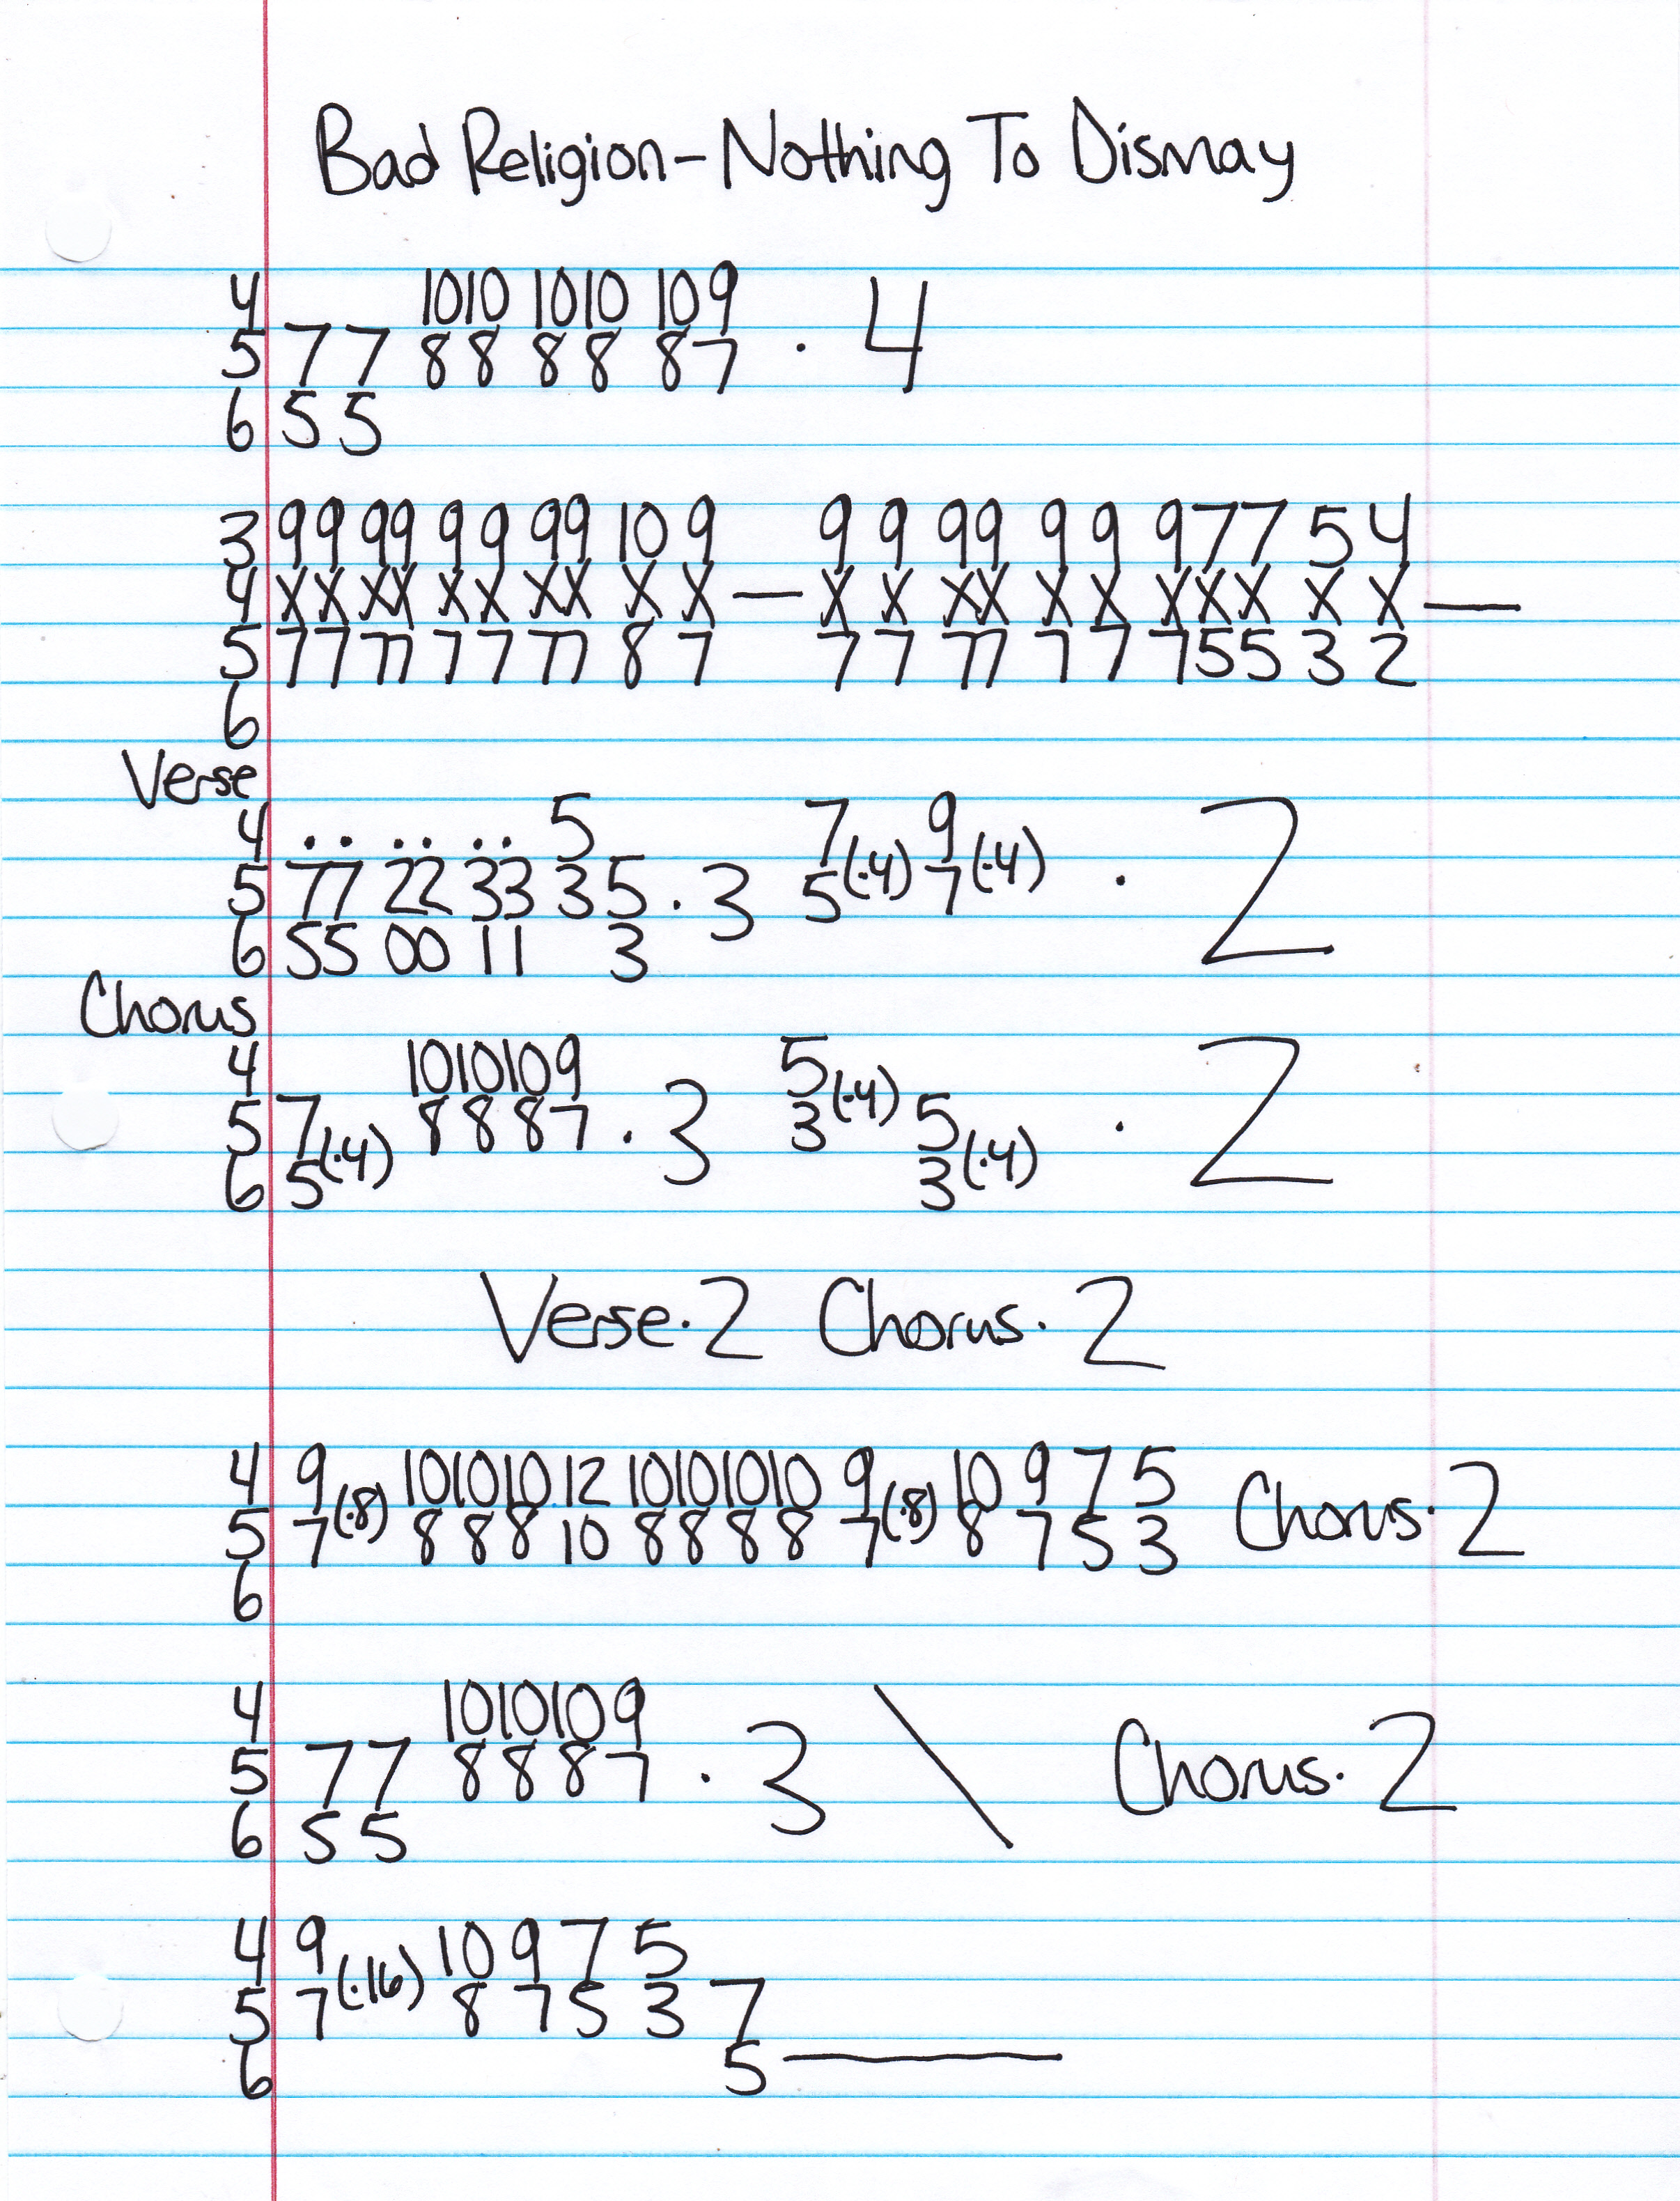 Bad Religion - Nothing To Dismay
4 10 10 10 10 10 9
5 7 7 8 8 8 8 8 7 · 4
6 5 5
3 9 9 9 9 9 9 9 9 10 9 9 9 9 9 9 9 9 7 7 5 4
4 X X X X X X X X X X — X X X X X X X X X X X —
5 7 7 7 7 7 7 7 7 8 7 7 7 7 7 7 7 7 5 5 3 2
6
Verse
4 . . . . . . 5 7 9
5 7 7 2 2 3 3 3 5 · 3 5 (·4) 7 (·4) · 2
6 5 5 0 0 1 1 3
Chorus
4 10 10 10 9 5
5 7 8 8 8 7 · 3 3 (·4) 5 · 2
6 5 (·4) 3 (·4)
Verse · 2 Chorus · 2
4 9 10 10 10 12 10 10 10 10 9 10 9 7 5
5 7 (·8) 8 8 8 10 8 8 8 8 7 (·8) 8 7 5 3 Chorus · 2
6
4 10 10 10 9
5 7 7 8 8 8 7 · 3 \ Chorus · 2
6 5 5
4 9 10 9 7 5
5 7 (·16) 8 7 5 3 7
6 5 —